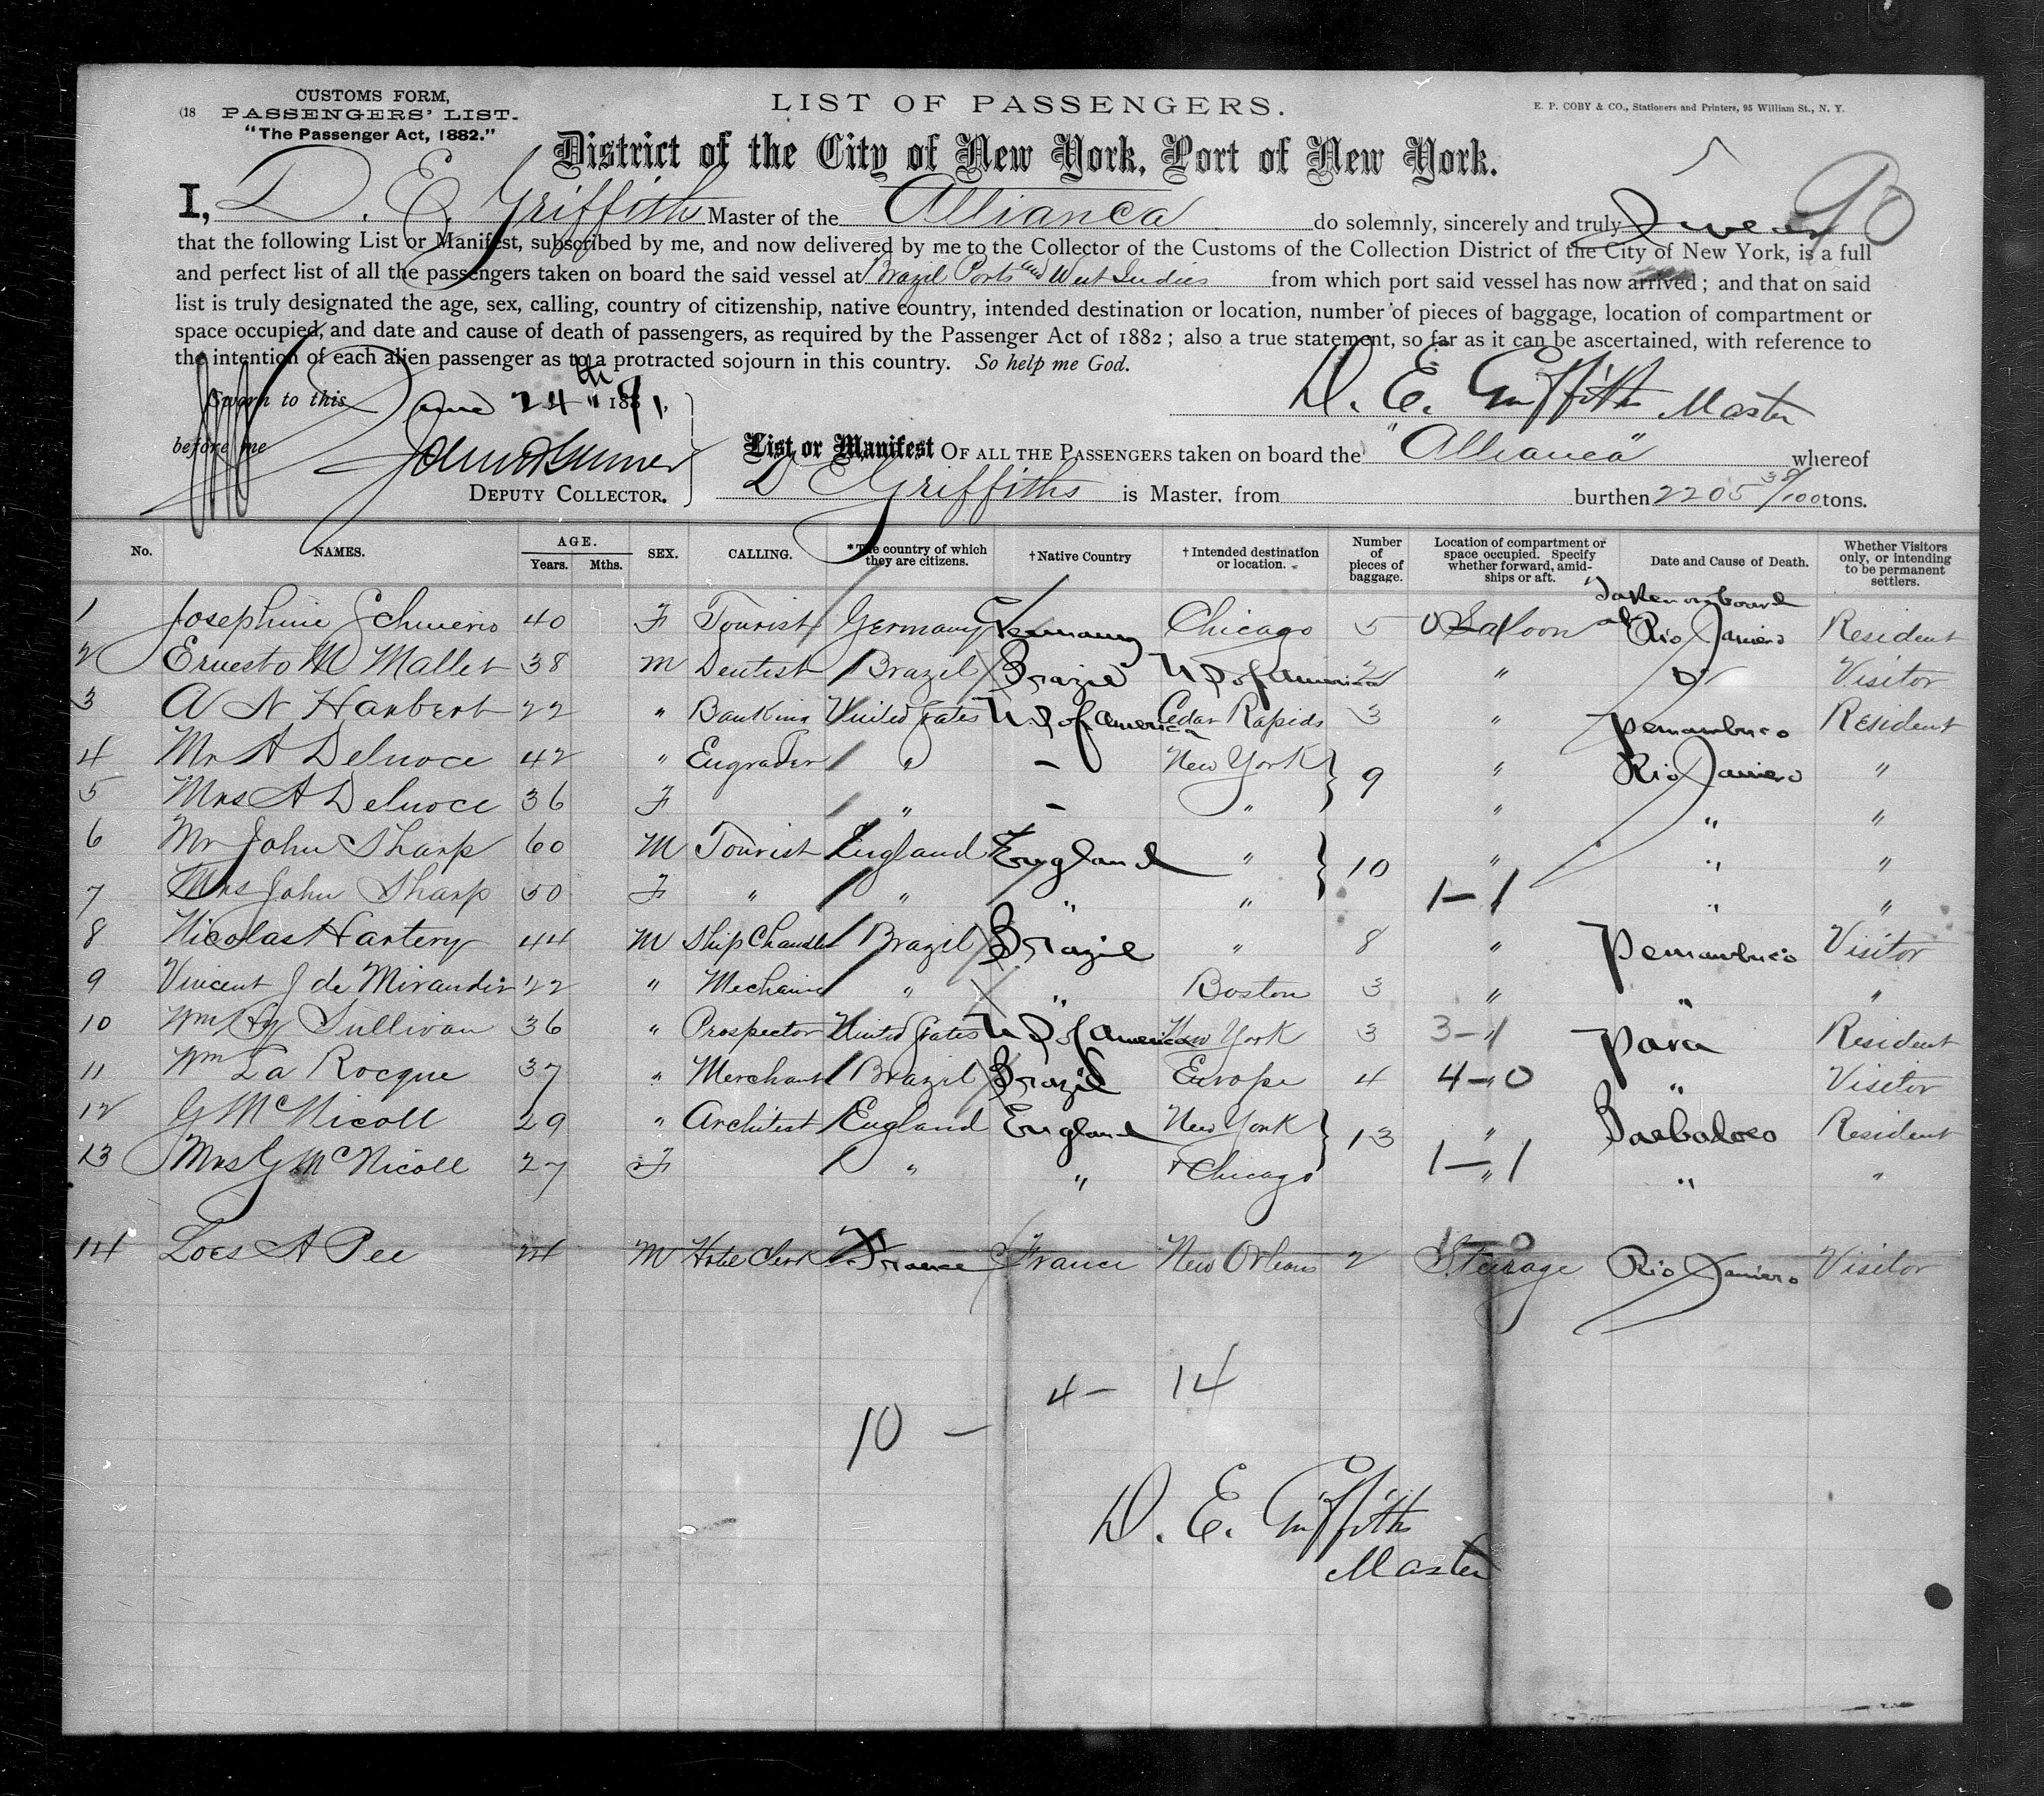 (18
CUSTOMS FORM,
PASSENGERS' LIST.
"The Passenger Act, 1882."
LIST OF PASSENGERS.
E. P. COBY & CO., Stationers and Printers, 95 William St., N. Y.
District of the City of New York, Port of New York.
90
I, D. E. Griffiths Master of the Allianca do solemnly, sincerely and truly Swear
that the following List or Manifest, subscribed by me, and now delivered by me to the Collector of the Customs of the Collection District of the City of New York, is a full
and perfect list of all the passengers taken on board the said vessel at Brazil Ports and West Indies from which port said vessel has now arrived; and that on said
list is truly designated the age, sex, calling, country of citizenship, native country, intended destination or location, number of pieces of baggage, location of compartment or
space occupied, and date and cause of death of passengers, as required by the Passenger Act of 1882; also a true statement, so far as it can be ascertained, with reference to
the intention of each alien passenger as to a protracted sojourn in this country. So help me God.
Sworn to this June 24th 1891,
D. E. Griffith Master
before me
DEPUTY COLLECTOR.
List or Manifest OF ALL THE PASSENGERS taken on board the "Allianca" whereof
D E Griffiths is Master, from burthen 2205 38/100 tons.
No. NAMES. AGE. Years. Mths. SEX. CALLING. *The country of which they are citizens. †Native Country †Intended destination or location. Number of pieces of baggage. Location of compartment or space occupied. Specify whether forward, amidships or aft. Date and Cause of Death. Whether Visitors only, or intending to be permanent settlers.
Taken on board at
1 Josephine 40 F Tourist Germany Germany Chicago 5 0 Saloon Rio Janiero Resident
2 Ernesto M Mallet 38 M Dentist Brazil Brazil U S of America 2 " " Visitor
3 A N Harbert 22 " Banking United States U S of America Cedar Rapids 3 " Pernambuco Resident
4 Mr A Delnoce 42 " Engraver " - New York 9 " Rio Janiero "
5 Mrs A Delnoce 36 F " - " " " "
6 Mr John Sharp 60 M Tourist England England " 10 " " "
7 Mrs John Sharp 50 F " " " " 1-1 " "
8 Nicolas Hartery 44 M Ship Chandler Brazil Brazil " 8 " Pernambuco Visitor
9 Vincent J de Mirandir 22 " Mechanic " " Boston 3 " " "
10 Wm Hy Sullivan 36 " Prospector United States U S of America New York 3 3-1 Para Resident
11 Wm La Rocque 37 " Merchant Brazil Brazil Europe 4 4-0 " Visitor
12 G McNicoll 29 " Architect England England New York 13 " Barbadoes Resident
13 Mrs G McNicoll 27 F " " + Chicago 1-1 " "
14 Loes A Pee 24 M Hotel Clerk France France New Orleans 2 1-0 Steerage Rio Janiero Visitor
4 - 14
10 -
D. E. Griffith
Master